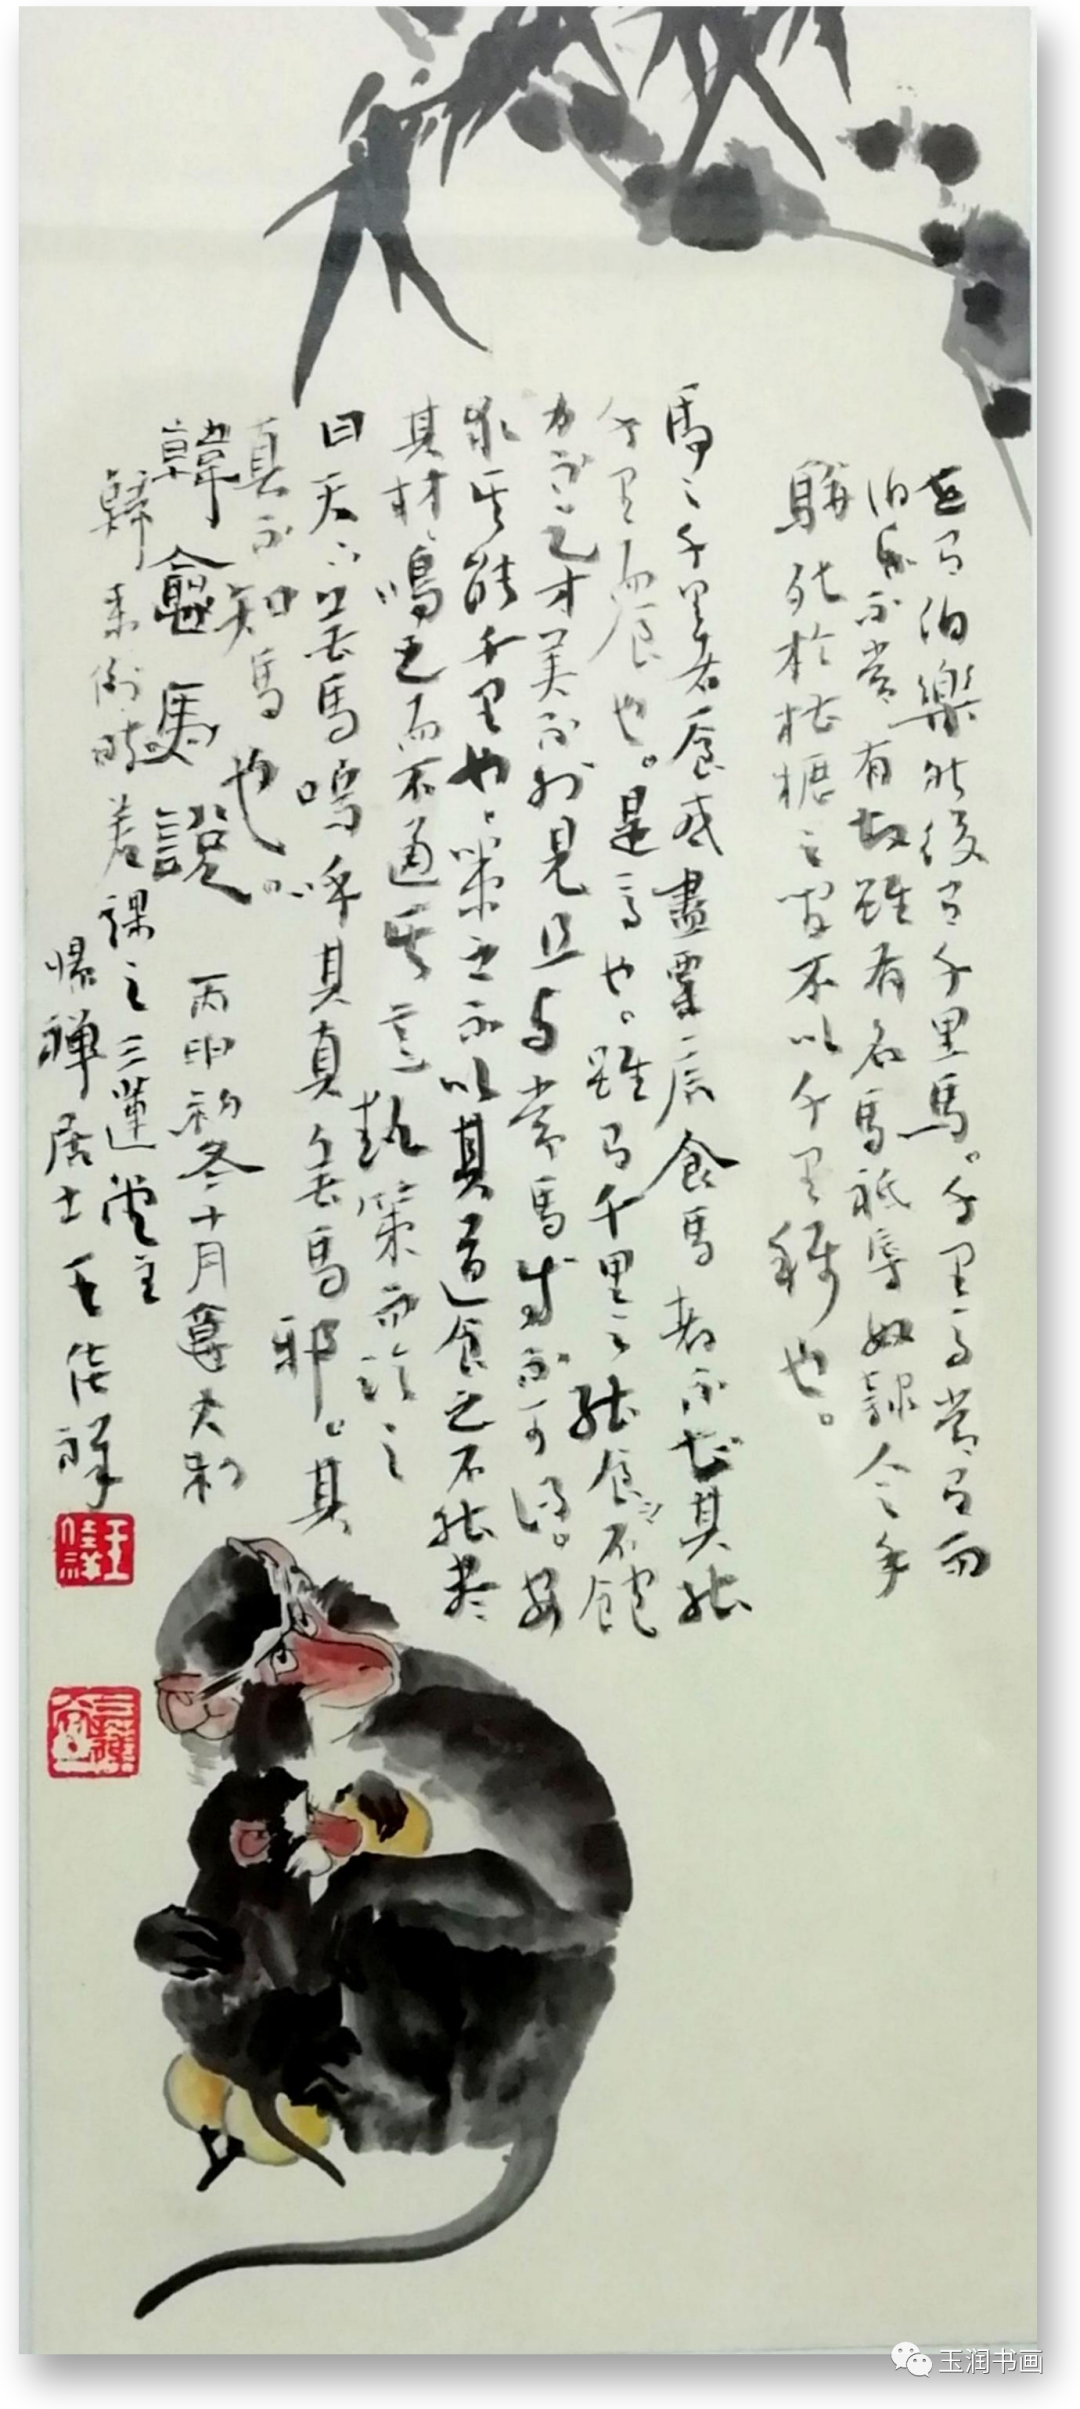 世有伯樂然後有千里馬。千里馬常有而
伯樂不常有故雖有名馬祗辱奴隸人之手
駢死於槽櫪之間不以千里稱也。
馬之千里者食或盡粟一石食馬者不知其能
千里而食也。是馬也。雖有千里之能食不飽
力不足才美不外見且與常馬等不可得。安
求其能千里也。策之不以其道食之不能盡
其材鳴之而不通其意執策而臨之
曰天下無馬嗚呼其真無馬邪。其
真不知馬也。
韓愈馬說 丙申初冬十月
歸來
課之三蓮堂主
歸禪居士王佳祥
王佳祥
三蓮堂
玉润书画